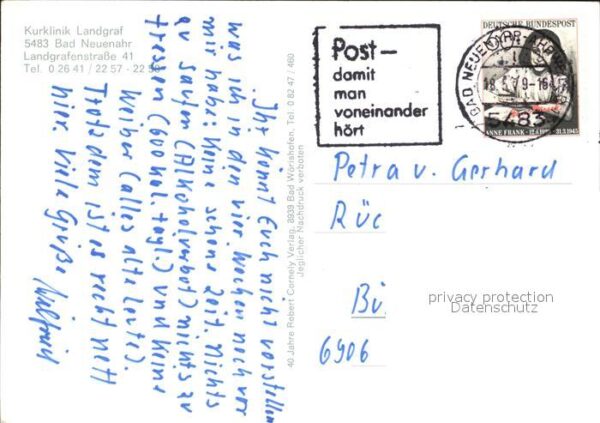 Kurklinik Landgraf
5483 Bad Neuenahr
Landgrafenstraße 41
Tel. 0 26 41 / 22 57 - 22 59
Ihr könnt Euch nicht vorstellen
was ich in den vier Wochen noch vor
mir habe. Keine schöne Zeit. Nichts
zu saufen (Alkoholverbot) nichts zu
fressen (600 kal. tägl.) und keine
Weiber (alles alte Leute).
Trotzdem ist es recht nett
hier. Viele Grüße
40 Jahre Robert Cornely Verlag, 8939 Bad Wörishofen, Tel. 0 82 47 / 460
Jeglicher Nachdruck verboten
Post –
damit
man
voneinander
hört
DEUTSCHE BUNDESPOST
BAD NEUENAHR-AHRW
5483
ANNE FRANK · 12.6.1929 · 31.3.1945
Petra u. Gerhard
Rüc
Bi
6906
privacy protection
Datenschutz